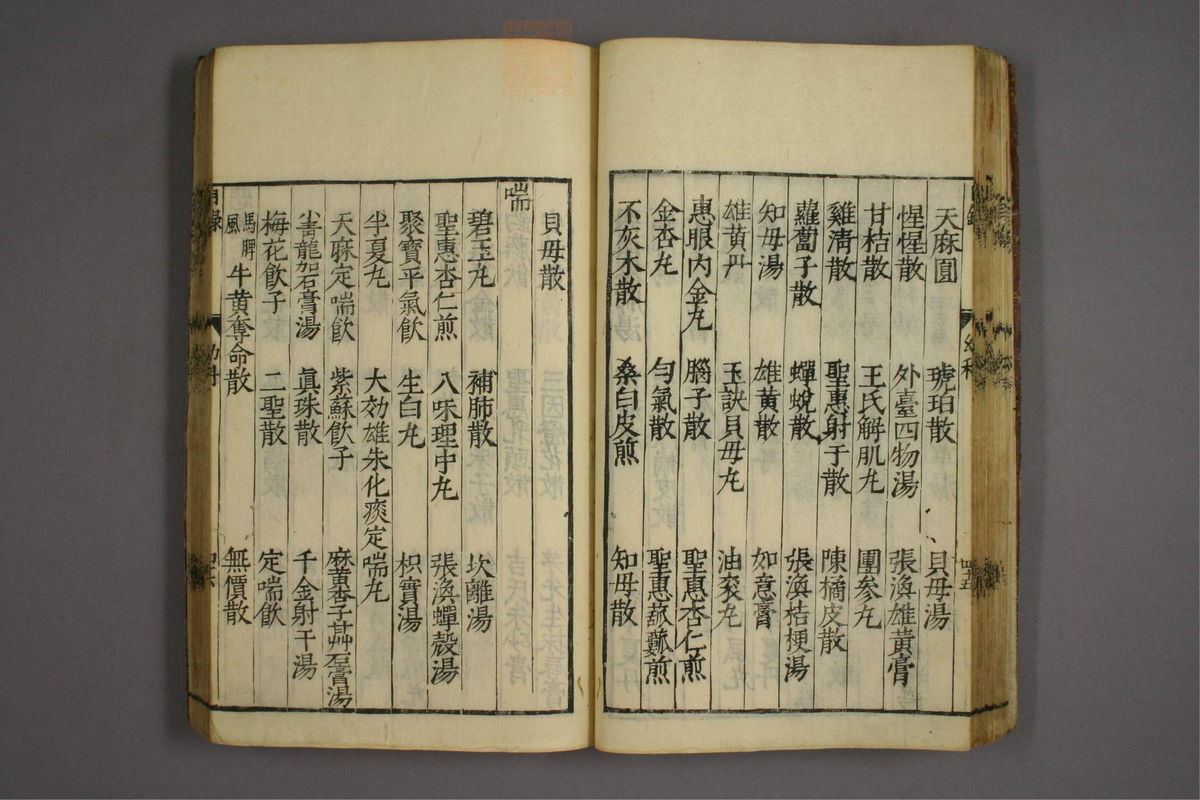 天麻圓 琥珀散 貝母湯
惺惺散 外臺四物湯 張渙雄黄膏
甘桔散 王氏解肌圥 團參圥
雞清散 聖惠射干散 陳橘皮散
蘿蔔子散 蟬蛻散 張渙桔梗湯
知母湯 雄黄散 如意膏
雄黄丹 玉訣貝母圥 油衮圥
惠眼内金圥 腦子散 聖惠杏仁煎
金杏圥 匀氣散 聖惠菝䕷煎
不灰木散 桑白皮煎 知母散
貝母散
喘
碧玉圥 補肺散 坎離湯
聖惠杏仁煎 八味理中圥 張渙蟬殼湯
聚寶平氣飲 生白圥 枳實湯
半夏圥 大効雄朱化痰定喘圥
天麻定喘飲 紫蘇飲子 麻黄杏子艸石膏湯
小青龍加石膏湯 真珠散 千金射干湯
梅花飲子 二聖散 定喘飲
馬脾風 牛黄奪命散 無價散
目録 幼科 四十六
幼科 四十五